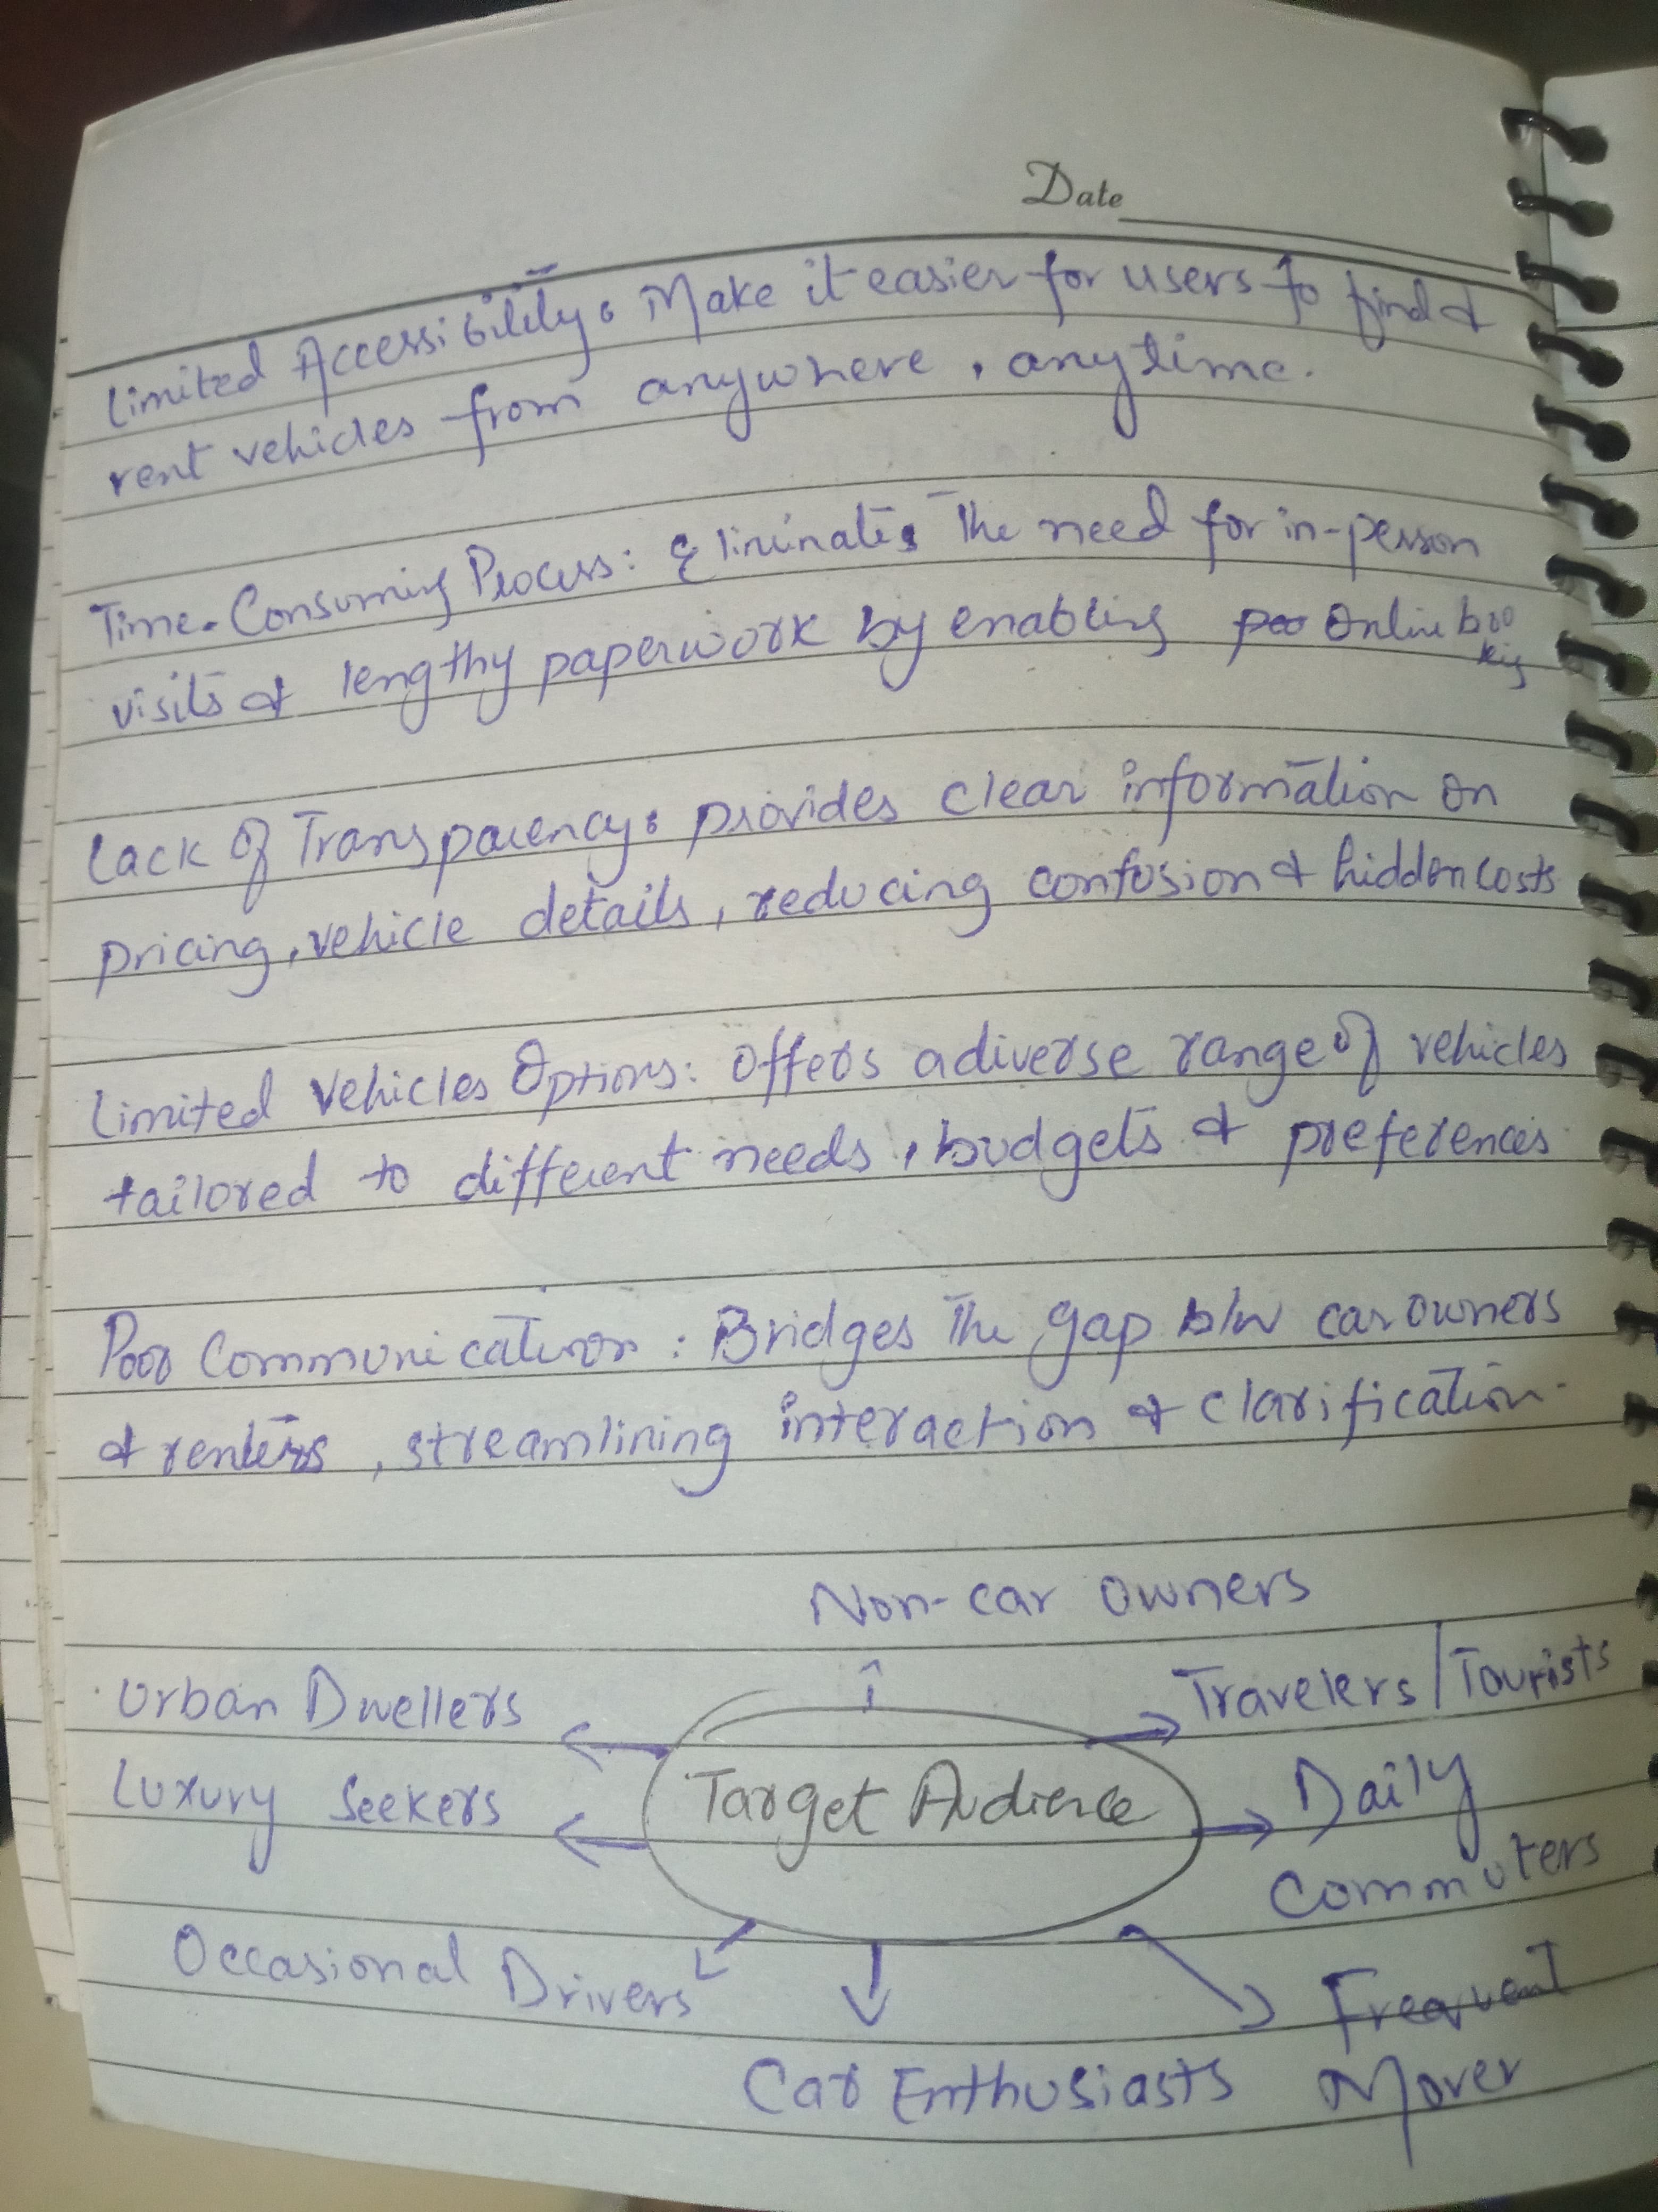 Date
Limited Accessibility: Make it easier for users to find &
rent vehicles from anywhere, anytime.
Time-Consuming Process: Eliminates the need for in-person
visits & lengthy paperwork by enabling Online boo
king
Lack of Transparency: provides clear information on
pricing, vehicle details, reducing confusion & hidden costs
Limited Vehicles Options: Offers a diverse range of vehicles
tailored to different needs, budgets & preferences
Poor Communication: Bridges the gap b/w car owners
& renters, streamlining interaction & clarification.
Non-car owners
Urban Dwellers
Travelers/Tourists
Luxury Seekers
Target Audience
Daily
Commuters
Occasional Drivers
Frequent
Car Enthusiasts
Mover